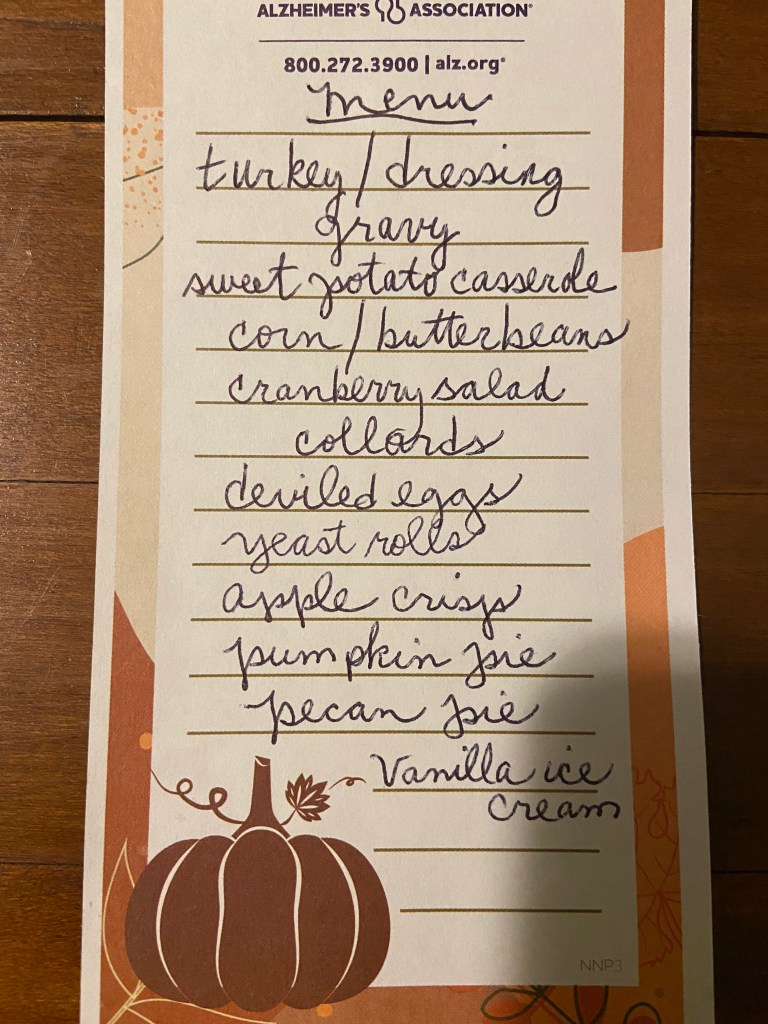 ALZHEIMER'S ASSOCIATION®
800.272.3900 | alz.org®
menu
turkey/dressing
gravy
sweet potato casserole
corn/butterbeans
cranberry salad
collards
deviled eggs
yeast rolls
apple crisp
pumpkin pie
pecan pie
Vanilla ice
cream
NNP3